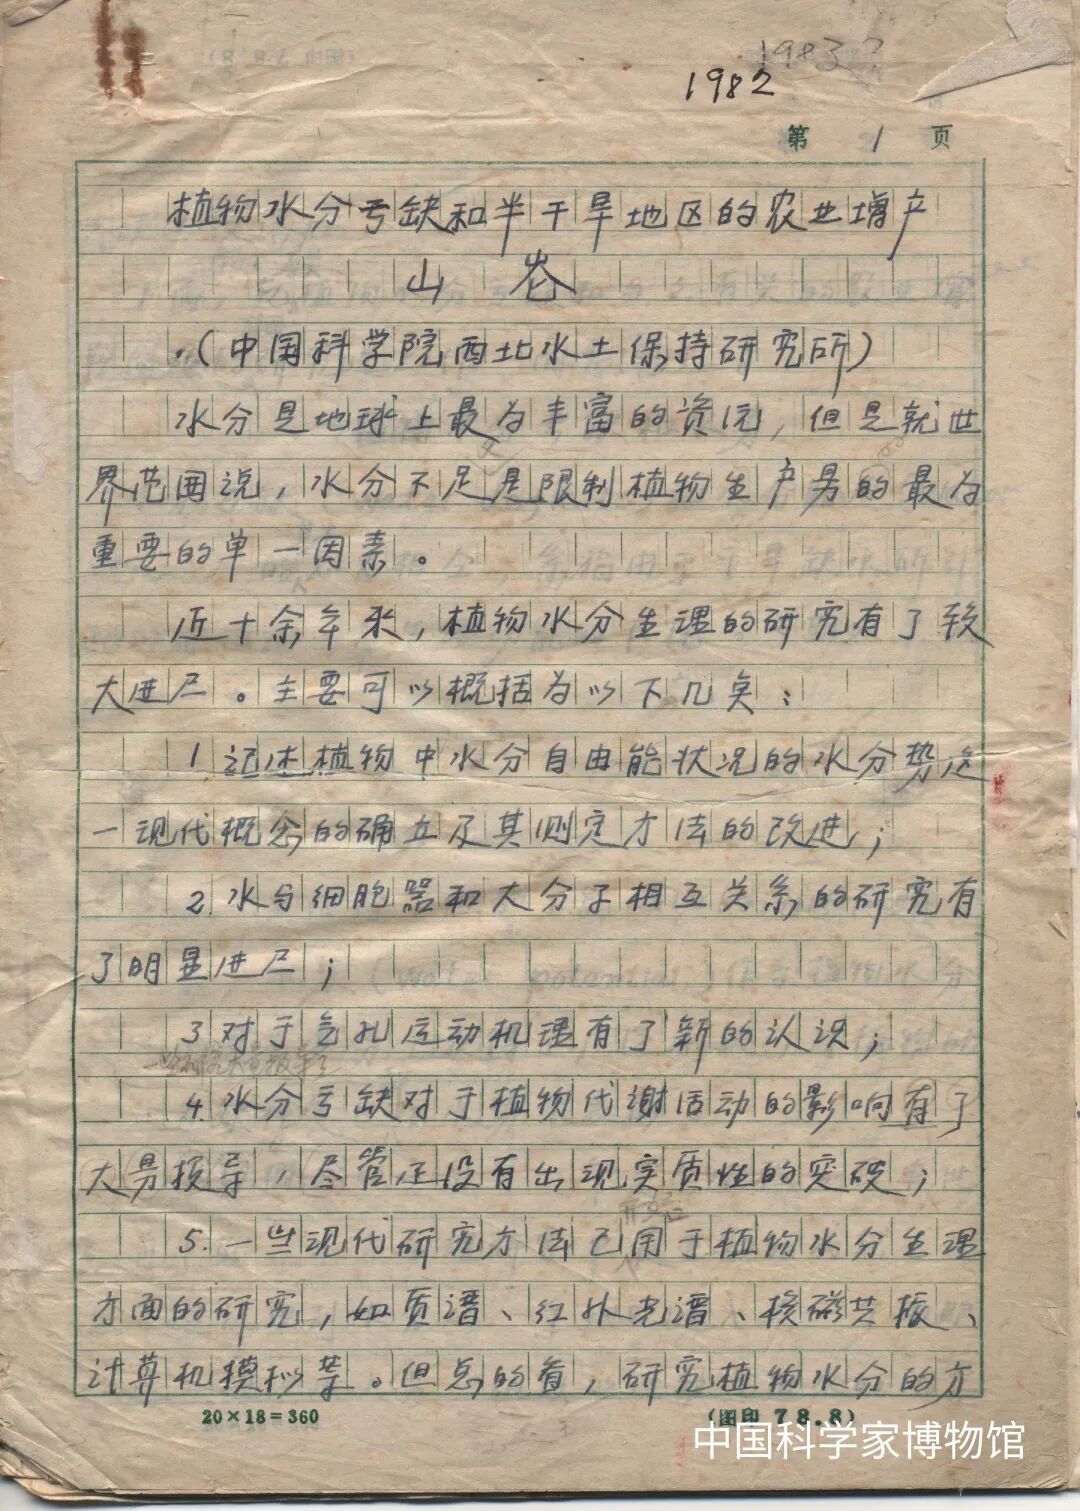 1983?
1982
第 1 页
植物水分亏缺和半干旱地区的农业增产
山仑
(中国科学院西北水土保持研究所)
水分是地球上最为丰富的资沅，但是就世
界范围说，水分不足是限制植物生产量的最为
重要的单一因素。
近十余年来，植物水分生理的研究有了较
大进尸。主要可以概括为以下几点：
1 记述植物中水分自由能状况的水分势这
一现代概念的确立及其测定方法的改进；
2. 水与细胞器和大分子相互关系的研究有
了明显进尸；
3 对于气孔运动机理有了新的认识；
4. 水分亏缺对于植物代谢活动的影响有了
大量报导，尽管还没有出现实质性的突破；
5. 一些现代研究方法已用于植物水分生理
方面的研究，如质谱、红外光谱、核磁共振、
计算机模拟等。但总的看，研究植物水分的方
20×18=360
(图印 78.8)
中国科学家博物馆